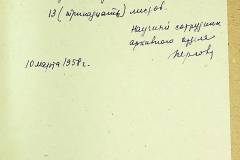 13 (тринадцать) листов.
Научный сотрудник
архивного отдела
Перлов
10 марта 1958 г.